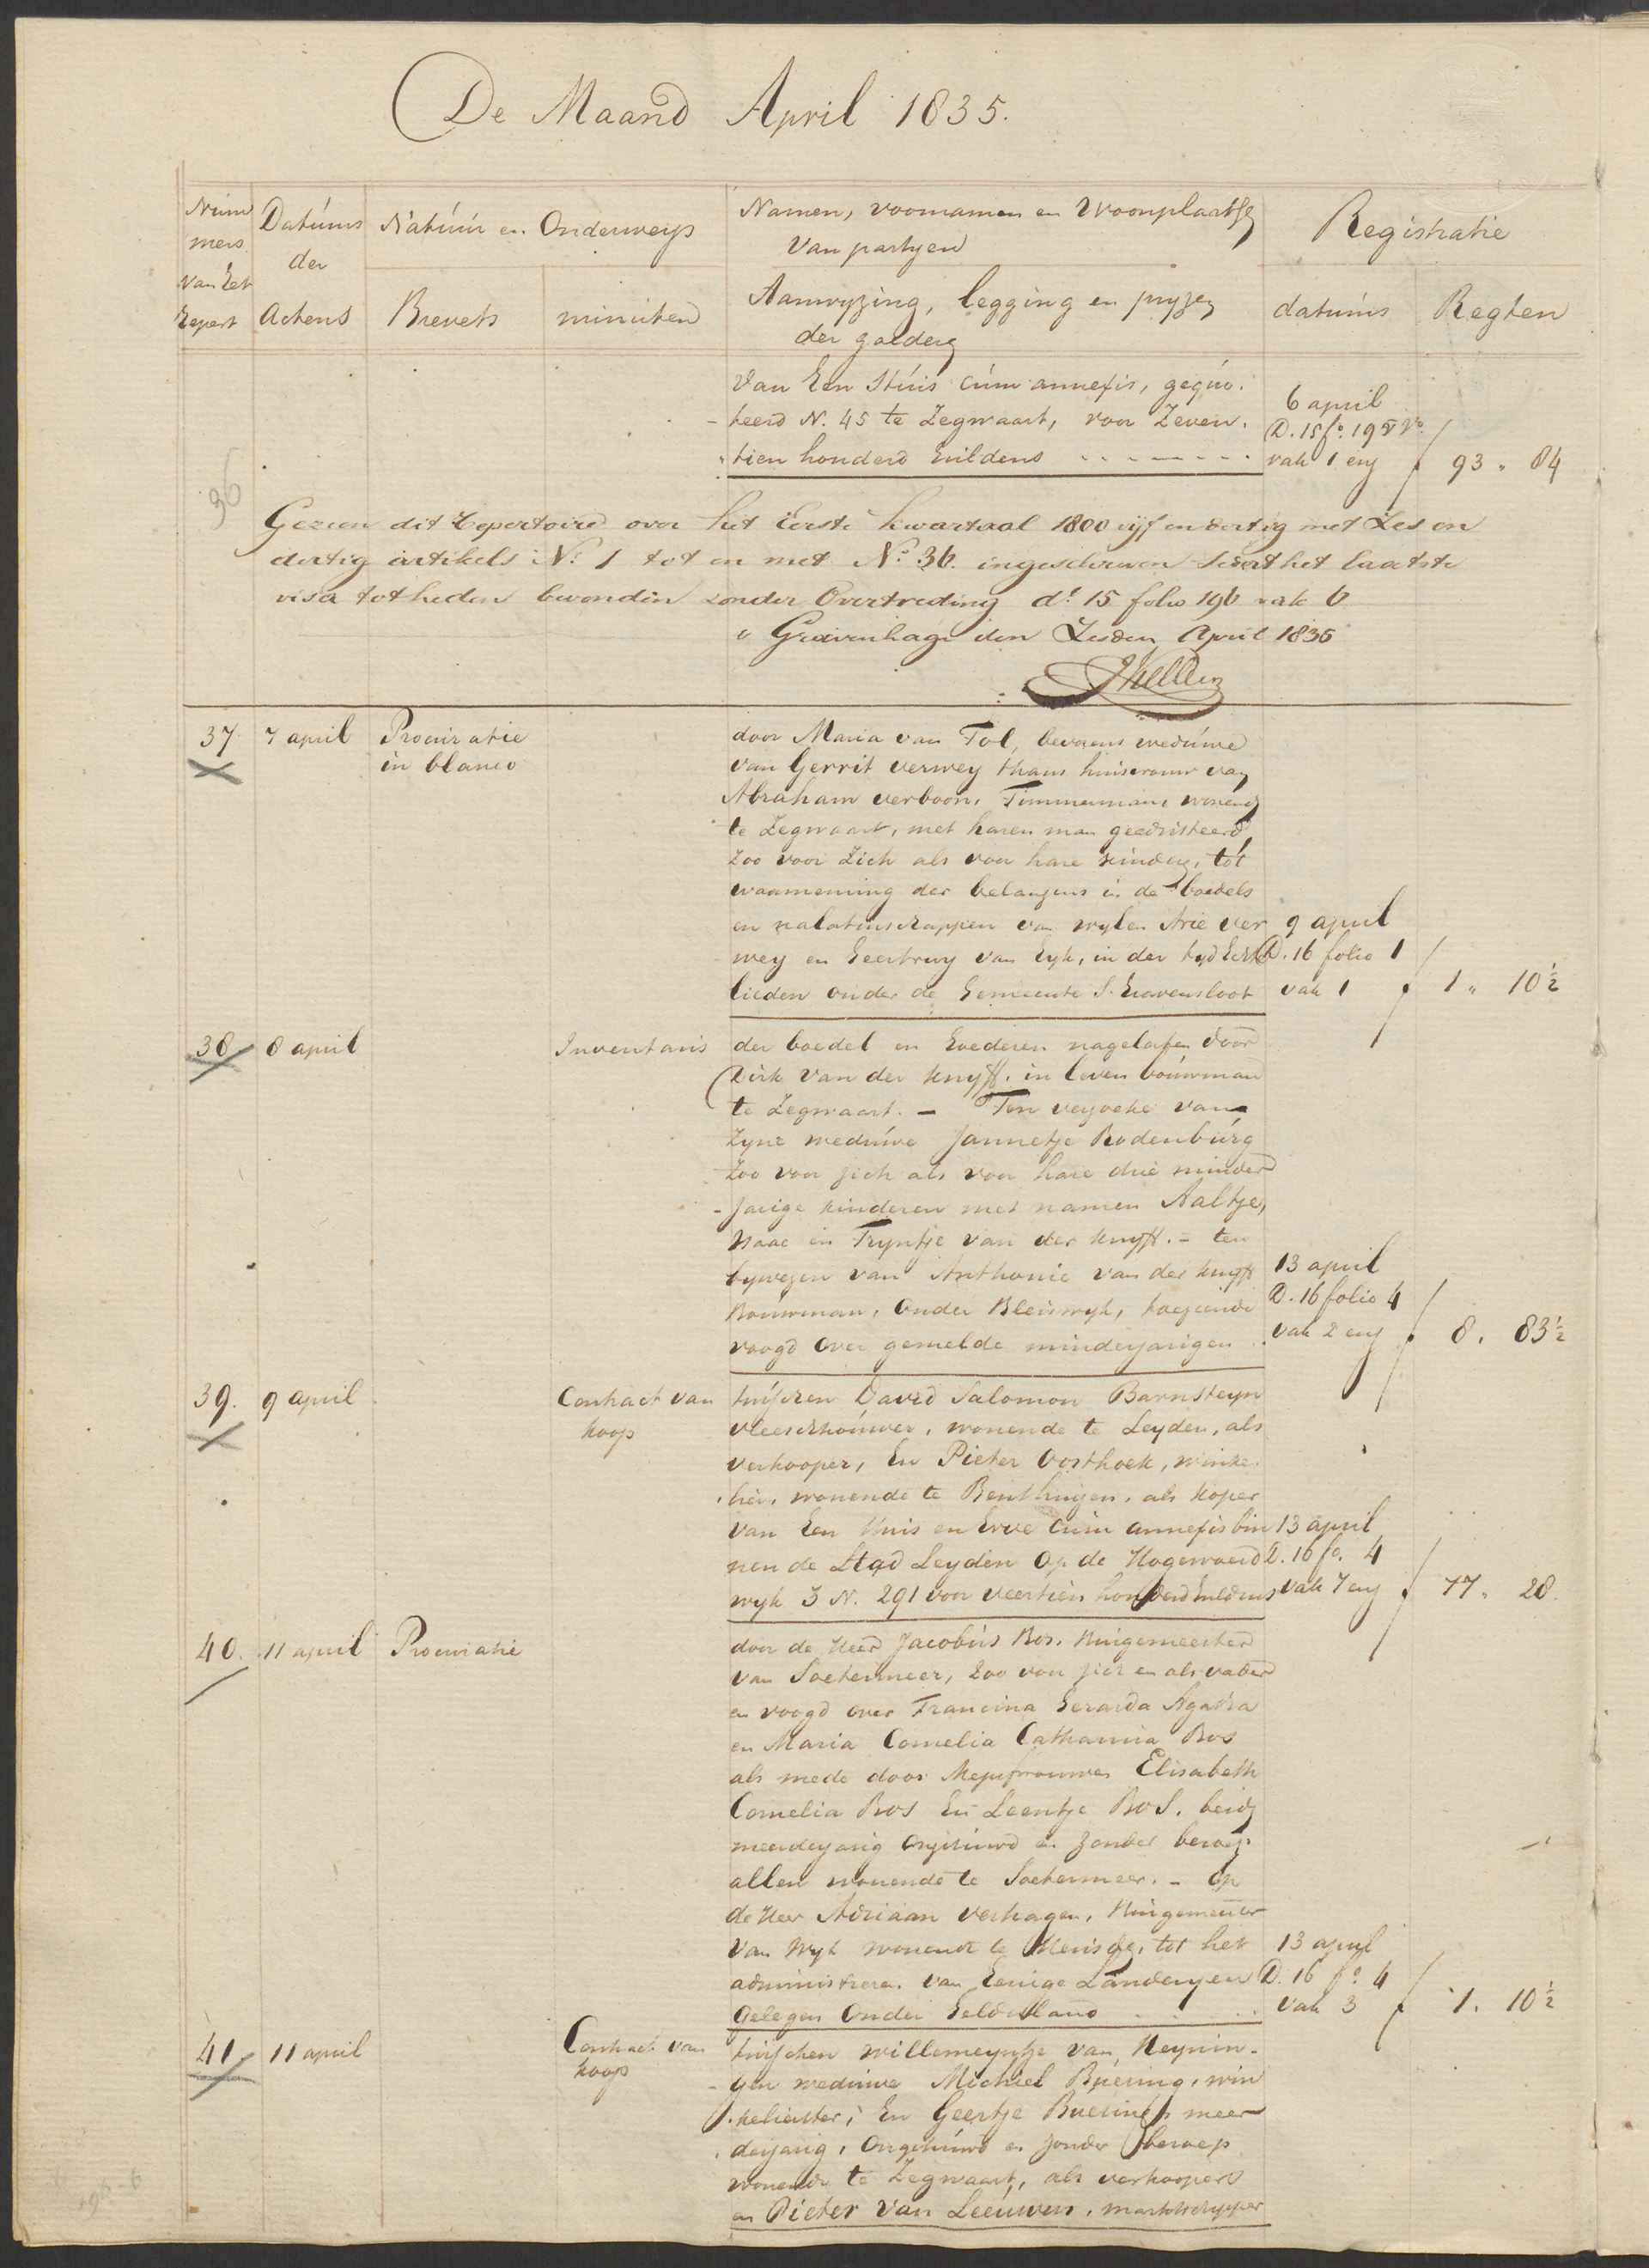 De Maand April 1835.
Num
mers
van het
Repert
Datúms
der
Actens
Natúúr en Onderwerp
Brevets
minúten
Namen, voornamen en Woonplaatse
Van partyen
Aanwyzing, legging en pryzen
der goederen
Registratie
datúms
Regten
Van Een Húis cúm annexis, gequo-
teerd N. 45 te Zegwaart, voor Zeven-
tien honderd Guldens
6 april
D. 15 fo. 195 Vo.
vak 1 en
f 93 " 84
36
Gezien dit Repertoire over het Eerste kwartaal 1800 vijf en dertig met Zes en
dertig artikels No. 1 tot en met No. 36. ingeschreven sedert het laatste
visa tot heden bevonden zonder Overtreding dl. 15 folio 196 vak 6
s Gravenhage den Zesden April 1835
37 7 april Procuratie
in blanco
door Maria van Tol, bevorens wedúwe
van Gerrit verwey thans huisvrouw van
Abraham verboon, Timmerman, wonend
te Zegwaart, met haren man geadsisteerd
Zoo voor Zich als voor hare kinderen, tot
waarneming der belangens in de boedels
en nalatenschappen van wylen Arie ver
wey en Geertruy van Eyk, in der tyd Echte
lieden onder de Gemeente S. Gravensloot
9 april
D. 16 folio 1
vak 1
f 1 " 10½
38 8 april Inventaris
der boedel en Goederen nagelaten door
Dirk van der knyff. in leven bouwman
te Zegwaart. - Ten verzoeke van
Zyne wedúwe Jannetje Rodenbúrg
Zoo voor zich als voor hare drie minder
-jarige kinderen met namen Aaltje,
Isaac en Tryntje van der knyff. - ten
bywezen van Anthonie van der knyff
Bouwman, Onder Bleiswyk, toeziende
voogd over gemelde minderjarigen
13 april
D. 16 folio 4
vak 2 en
f 8 . 83½
39. 9 april Contract van
koop
tusschen David Salomon Barnsteyn
vleeschhoúwer, wonende te Leyden, als
verkooper, En Pieter Oosthoek, winke-
lier, wonende te Benthuyzen, als koper
van Een Huis en Erve cúm annexis bin
nen de Stad Leyden Op de Hogewoerd
wyk 3 N. 291 voor veertien honderd Guldens
13 april
D. 16 fo. 4
vak 7 en
f 77 " 28.
40. 11 april Procuratie
door de Heer Jacobús Bos. Búrgemeester
van Soetermeer, Zoo voor zich en als vader
en voogd over Francina Gerarda Agatha
en Maria Cornelia Catharina Bos
als mede door Mejufvrouwen Elisabeth
Cornelia Bos En Leentje Bos. beide
meerderjarig Ongehúwd en zonder beroep
allen wonende te Soetermeer. - Op
de Heer Adriaan Verhagen, Búrgemeester
van Wyk wonende te Heusden, tot het
administreren van Eenige Landeryen
Gelegen Onder Gelderland
13 april
D. 16 fo. 4
vak 3
f 1. 10½
41 11 april Contract van
koop
tusschen Willemeyntje van Heynin-
gen wedúwe Michiel Buering, win
kelierster, En Geertje Buering meer
derjarig, Ongehúwd en zonder beroep
wonende te Zegwaart, als verkoopers
en Pieter van Leeúwen, marktschipper